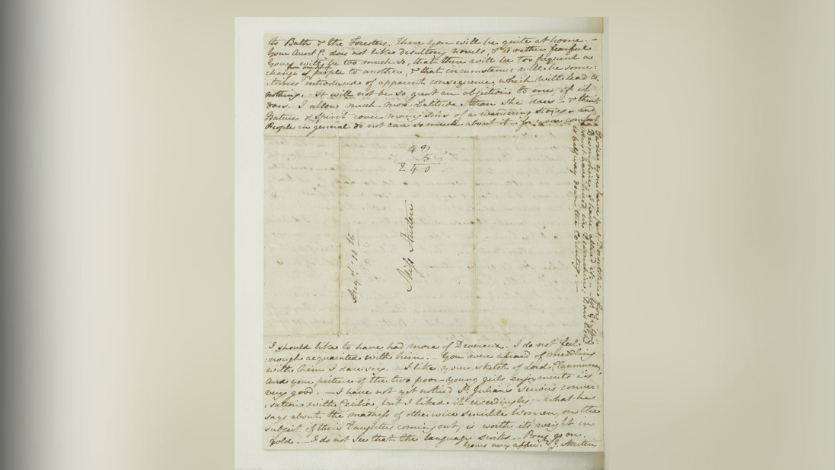 to Bath & the Foresters. There you will be quite at home.—
Your Aunt C. does not like desultory novels, & is rather fearful
yours will be too much so, that there will be too frequent a
change from one set of people to another, & that circumstances will be some-
times introduced of apparent consequence, which will lead to
nothing.— It will not be so great an objection to me, if it
does. I allow much more Latitude than She does— & think
Nature & Spirit cover many Sins of a wandering Story— and
People in general do not care so much about it— for your comfort.
4 8
5
2 4 0
Miss Austen
Augst 10th
I should like to have had more of Devereux. I do not feel
enough acquainted with him.— You were afraid of meddling
with him I dare say.— I like your sketch of Lord Clanmurray,
and your picture of the two poor young girls enjoyments is
very good.— I have not yet noticed St Julian's serious conver-
sation with Cecilia, but I liked it exceedingly;— What he
says about the madness of otherwise sensible Women, on the
subject of their Daughters coming out, is worth its weight in
gold.— I do not see that the language sinks. Pray go on.
Yours very affec: J. Austen